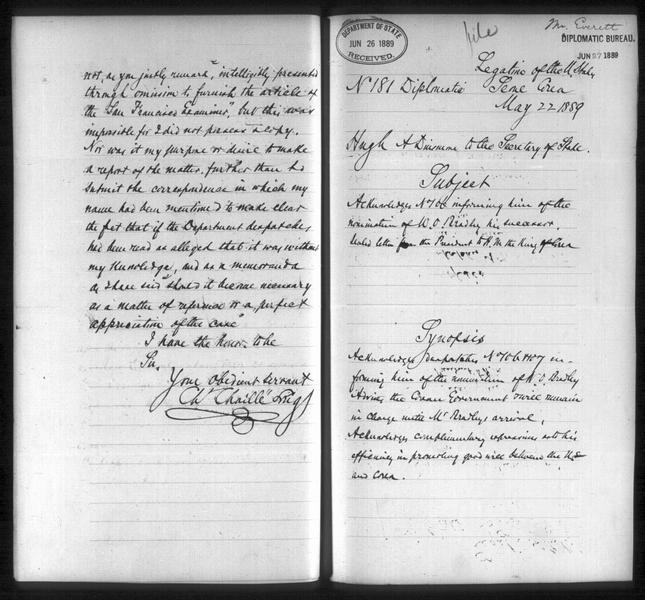 not, as you justly remark, "intelligibly presented
through omission to furnish the article of
the "San Francisco Examiner", but this was
impossible for I did not possess a copy.
Nor was it my purpose or desire to make
a report of the matter, further than to
submit the correspondence in which my
name had been mentioned to make clear
the fact that if the Department despatches
had been read as alleged that it was without
my knowledge, and as a memoranda
as I have said "should it become necessary
as a matter of reference or a perfect
appreciation of the case"
I have the honor to be
Sir,
Your obedient servant
Ch Chaillé Long
DEPARTMENT OF STATE
JUN 26 1889
RECEIVED
file
Mr. Everett
DIPLOMATIC BUREAU.
JUN 27 1889
Legation of the U. States
No 181 Diplomatic Seoul Corea
May 22 1889
Hugh A Dinsmore to the Secretary of State.
Subject
Acknowledges No 106 informing him of the
nomination of W. O. Bradley his successor.
Sealed letter from the President to H. M. the King of Corea
Synopsis
Acknowledges despatches No 106 & 107 in-
forming him of the nomination of W. O. Bradley
Advises the Corean Government & will remain
in charge until Mr Bradley's arrival,
Acknowledges complimentary expressions as to his
efficiency in promoting good will between the U.S
and Corea.